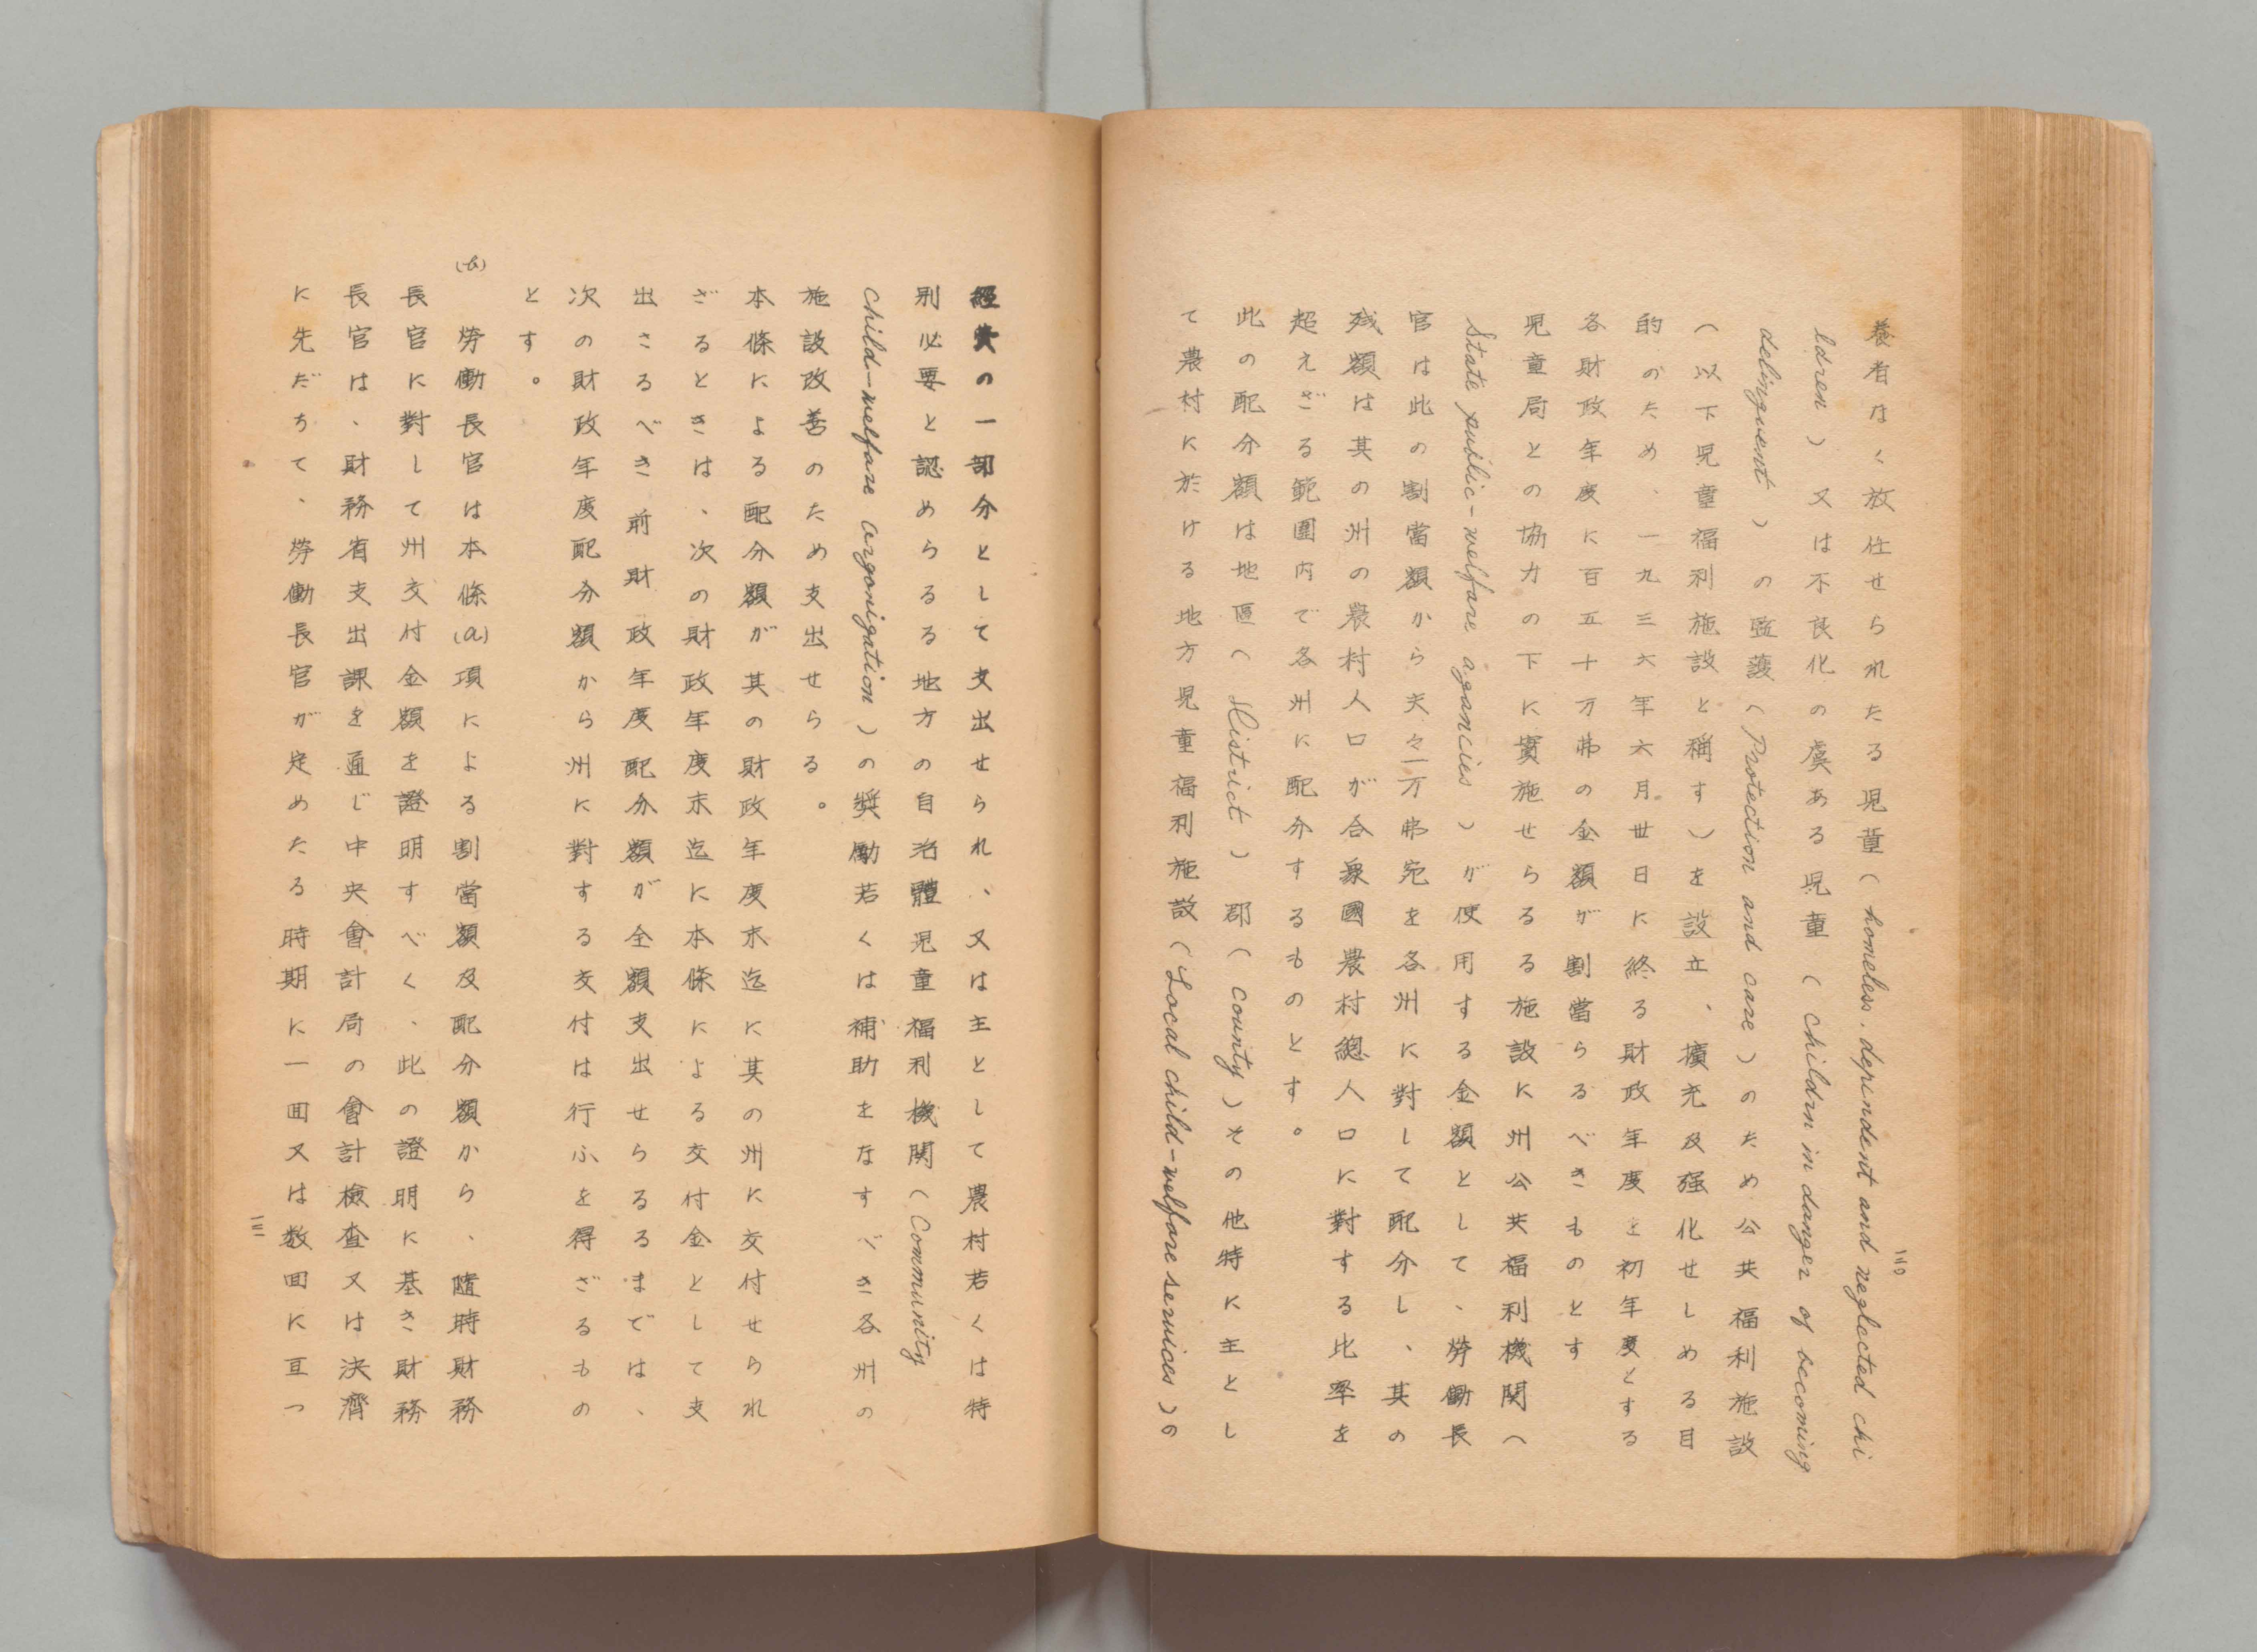 一三〇
養者なく放任せられたる児童(homeless, dependent and neglected chi
ldren)又は不良化の虞ある児童(children in danger of becoming
delinquent)の監護(Protection and care)のため公共福利施設
(以下児童福利施設と稱す)を設立、擴充及强化せしめる目
的のため、一九三六年六月卅日に終る財政年度を初年度とする
各財政年度に百五十万弗の金額が割當らるべきものとす
児童局との協力の下に實施せらるる施設に州公共福利機関(
State puilic-welfare agancies)が使用する金額として、勞働長
官は此の割當額から夫々一万弗宛を各州に對して配分し、其の
残額は其の州の農村人口が合衆國農村總人口に對する比率を
超えざる範圍内で各州に配分するものとす。
此の配分額は地區(District)郡(county)その他特に主とし
て農村に於ける地方児童福利施設(Local child-welfare services)の
經費の一部分として支出せられ、又は主として農村若くは特
別必要と認めらるる地方の自治體児童福利機関(Community
child-welfare argonigation)の奬勵若くは補助をなすべき各州の
施設改善のため支出せらる。
本條による配分額が其の財政年度末迄に其の州に交付せられ
ざるときは、次の財政年度末迄に本條による交付金として支
出さるべき前財政年度配分額が全額支出せらるるまでは、
次の財政年度配分額から州に對する交付は行ふを得ざるもの
とす。
(b) 勞働長官は本條(a)項による割當額及配分額から、隨時財務
長官に對して州交付金額を證明すべく、此の證明に基き財務
長官は、財務省支出課を通じ中央會計局の會計檢査又は決濟
に先だちて、勞働長官が定めたる時期に一囬又は数囬に亙つ
一三一